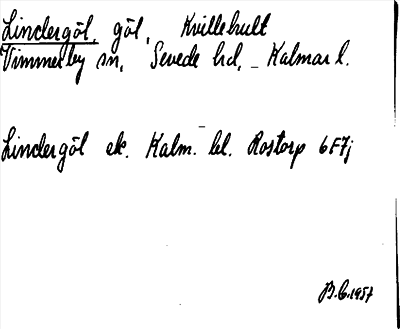 Lindergöl, göl, Kvillehult
Vimmerby sn, Sevede hd, Kalmar l.
Lindergöl ek. Kalm. bl. Rostorp 6F7j
B.G. 1957